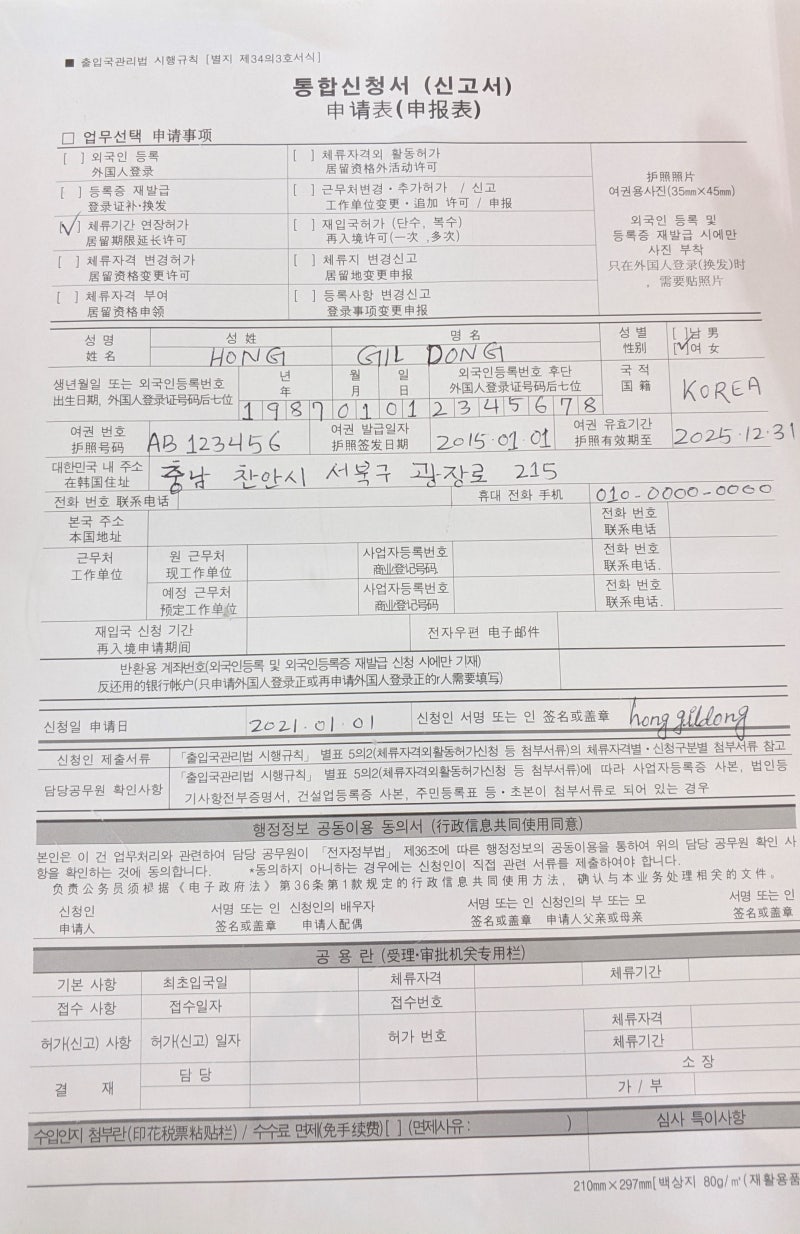 ■ 출입국관리법 시행규칙 [별지 제34의3호서식]
통합신청서 (신고서)
申请表(申报表)
□ 업무선택 申请事项
[ ] 외국인 등록
外国人登录
[ ] 체류자격외 활동허가
居留资格外活动许可
[ ] 등록증 재발급
登录证补·换发
[ ] 근무처변경·추가허가 / 신고
工作单位变更·追加 许可 / 申报
[✓] 체류기간 연장허가
居留期限延长许可
[ ] 재입국허가 (단수, 복수)
再入境许可(一次 ,多次)
[ ] 체류자격 변경허가
居留资格变更许可
[ ] 체류지 변경신고
居留地变更申报
[ ] 체류자격 부여
居留资格申领
[ ] 등록사항 변경신고
登录事项变更申报
护照照片
여권용사진(35mm×45mm)
외국인 등록 및
등록증 재발급 시에만
사진 부착
只在外国人登录(换发)时
, 需要贴照片
성 명
姓 名
성 姓
HONG
명 名
GIL DONG
성 별
性别
[ ]남 男
[✓]여 女
생년월일 또는 외국인등록번호
出生日期, 外国人登录证号码后七位
년
年
월
月
일
日
외국인등록번호 후단
外国人登录证号码后七位
1 9 8 7 0 1 0 1 2 3 4 5 6 7 8
국 적
国 籍
KOREA
여권 번호
护照号码
AB 123456
여권 발급일자
护照签发日期
2015.01.01
여권 유효기간
护照有效期至
2025.12.31
대한민국 내 주소
在韩国住址
충남 찬안시 서북구 광장로 215
전화 번호 联系电话
휴대 전화 手机
010-0000-0000
본국 주소
本国地址
전화 번호
联系电话
근무처
工作单位
원 근무처
现工作单位
사업자등록번호
商业登记号码
전화 번호
联系电话.
예정 근무처
预定工作单位
사업자등록번호
商业登记号码
전화 번호
联系电话.
재입국 신청 기간
再入境申请期间
전자우편 电子邮件
반환용 계좌번호(외국인등록 및 외국인등록증 재발급 신청 시에만 기재)
反还用的银行帐户(只申请外国人登录正或再申请外国人登录正的r人需要填写)
신청일 申请日
2021.01.01
신청인 서명 또는 인 签名或盖章
hong gildong
신청인 제출서류
「출입국관리법 시행규칙」 별표 5의2(체류자격외활동허가신청 등 첨부서류)의 체류자격별·신청구분별 첨부서류 참고
담당공무원 확인사항
「출입국관리법 시행규칙」 별표 5의2(체류자격외활동허가신청 등 첨부서류)에 따라 사업자등록증 사본, 법인등
기사항전부증명서, 건설업등록증 사본, 주민등록표 등·초본이 첨부서류로 되어 있는 경우
행정정보 공동이용 동의서 (行政信息共同使用同意)
본인은 이 건 업무처리와 관련하여 담당 공무원이 「전자정부법」 제36조에 따른 행정정보의 공동이용을 통하여 위의 담당 공무원 확인 사
항을 확인하는 것에 동의합니다. *동의하지 아니하는 경우에는 신청인이 직접 관련 서류를 제출하여야 합니다.
负责公务员须根据《电子政府法》第36条第1款规定的行政信息共同使用方法, 确认与本业务处理相关的文件。
신청인
申请人
서명 또는 인
签名或盖章
신청인의 배우자
申请人配偶
서명 또는 인
签名或盖章
신청인의 부 또는 모
申请人父亲或母亲
서명 또는 인
签名或盖章
공 용 란 (受理·审批机关专用栏)
기본 사항
최초입국일
체류자격
체류기간
접수 사항
접수일자
접수번호
허가(신고) 사항
허가(신고) 일자
허가 번호
체류자격
체류기간
결 재
담 당
소 장
가 / 부
수입인지 첨부란(印花税票粘贴栏) / 수수료 면제(免手续费)[ ] (면제사유 : )
심사 특이사항
210mm×297mm[백상지 80g/㎡(재활용품